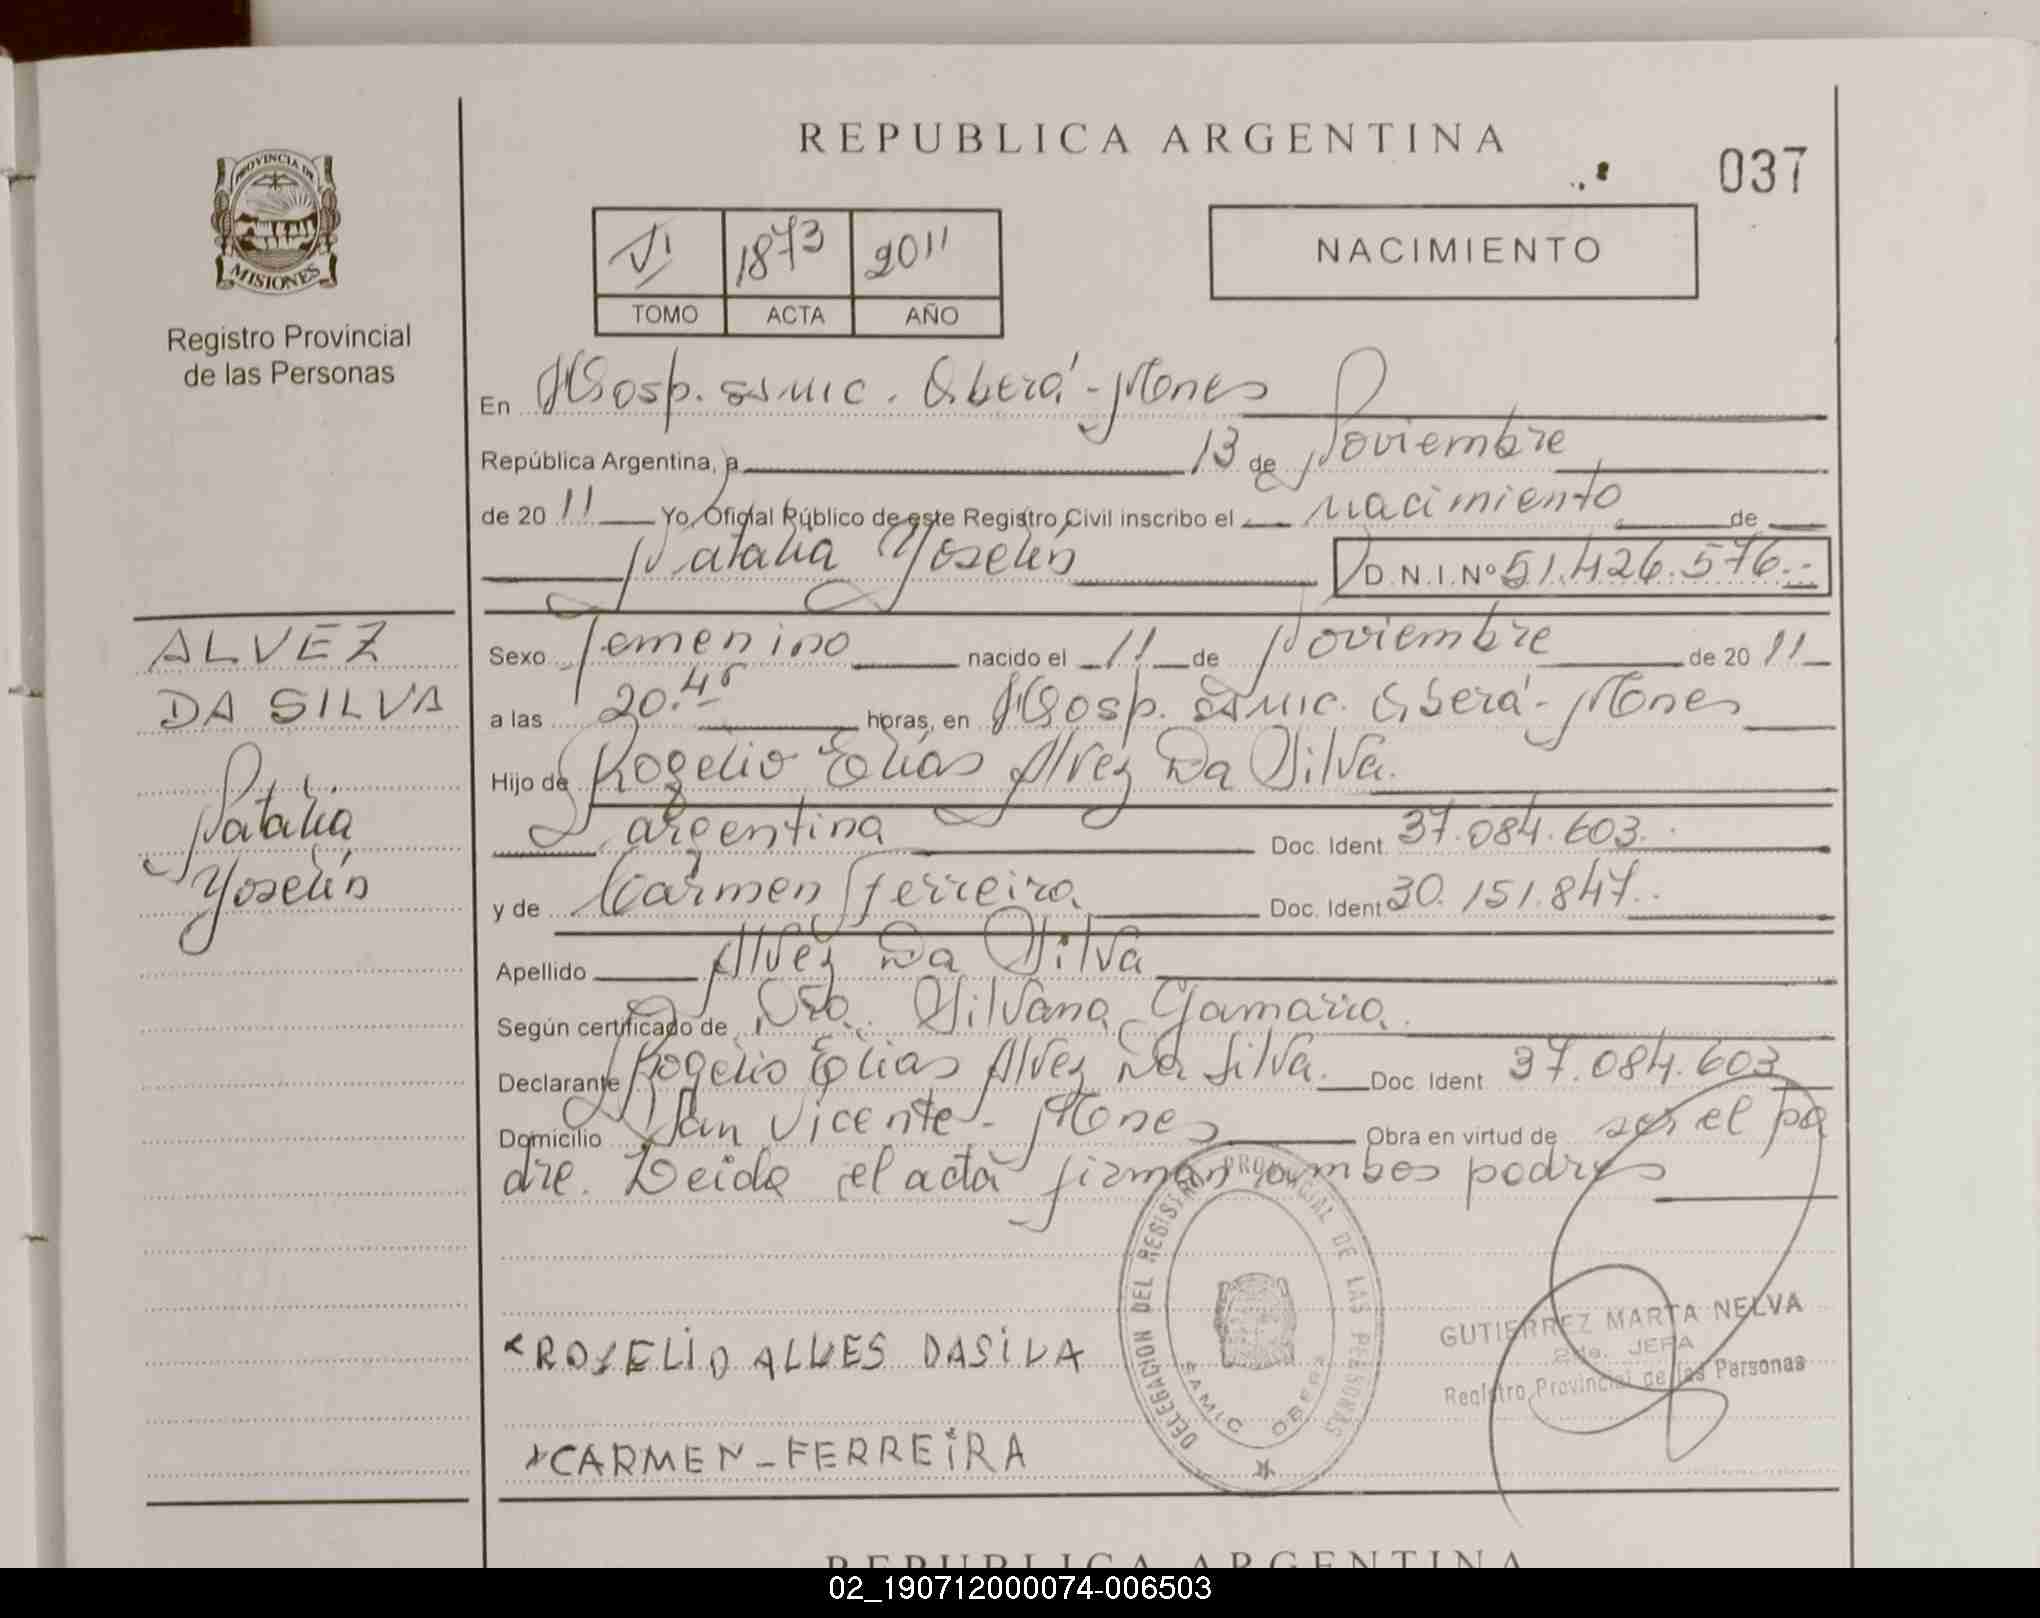 REPUBLICA ARGENTINA
037
PROVINCIA DE
MISIONES
Registro Provincial
de las Personas
VI 1873 2011
TOMO ACTA AÑO
NACIMIENTO
En Hosp. SAMIC. Oberá - Mones
República Argentina, a 13 de Noviembre
de 2011 Yo, Oficial Público de este Registro Civil inscribo el nacimiento de
Natalia Yoselín D.N.I. Nº 51.426.576.-
ALVEZ
DA SILVA
Natalia
Yoselín
Sexo femenino nacido el 11 de Noviembre de 2011
a las 20.45 horas, en Hosp. SAMIC. Oberá - Mones
Hijo de Rogelio Elías Alvez Da Silva.
argentina Doc. Ident. 37.084.603.
y de Carmen Ferreira. Doc. Ident. 30.151.847.
Apellido Alvez Da Silva
Según certificado de Dra. Silvana Gamarra.
Declarante Rogelio Elías Alvez Da Silva. Doc. Ident 37.084.603
Domicilio San Vicente - Mones Obra en virtud de ser el pa
dre. Leida el acta firman ambos padres
DELEGACION DEL REGISTRO PROVINCIAL DE LAS PERSONAS
SAMIC OBERA
ROJELIO ALVES DASILVA
CARMEN - FERREIRA
GUTIERREZ MARTA NELVA
2da. JEFA
Registro Provincial de las Personas
REPUBLICA ARGENTINA
02_190712000074-006503